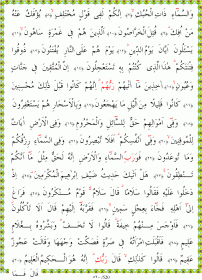 وَالسَّمَاءِ ذَاتِ الْحُبُكِ ﴿٧﴾ إِنَّكُمْ لَفِي قَوْلٍ مُخْتَلِفٍ ﴿٨﴾ يُؤْفَكُ عَنْهُ
مَنْ أُفِكَ ﴿٩﴾ قُتِلَ الْخَرَّاصُونَ ﴿١٠﴾ الَّذِينَ هُمْ فِي غَمْرَةٍ سَاهُونَ ﴿١١﴾
يَسْأَلُونَ أَيَّانَ يَوْمُ الدِّينِ ﴿١٢﴾ يَوْمَ هُمْ عَلَى النَّارِ يُفْتَنُونَ ﴿١٣﴾ ذُوقُوا
فِتْنَتَكُمْ هَذَا الَّذِي كُنْتُمْ بِهِ تَسْتَعْجِلُونَ ﴿١٤﴾ إِنَّ الْمُتَّقِينَ فِي جَنَّاتٍ
وَعُيُونٍ ﴿١٥﴾ آخِذِينَ مَا آتَاهُمْ رَبُّهُمْ إِنَّهُمْ كَانُوا قَبْلَ ذَلِكَ مُحْسِنِينَ
﴿١٦﴾ كَانُوا قَلِيلًا مِنَ اللَّيْلِ مَا يَهْجَعُونَ ﴿١٧﴾ وَبِالْأَسْحَارِ هُمْ يَسْتَغْفِرُونَ
﴿١٨﴾ وَفِي أَمْوَالِهِمْ حَقٌّ لِلسَّائِلِ وَالْمَحْرُومِ ﴿١٩﴾ وَفِي الْأَرْضِ آيَاتٌ
لِلْمُوقِنِينَ ﴿٢٠﴾ وَفِي أَنْفُسِكُمْ أَفَلَا تُبْصِرُونَ ﴿٢١﴾ وَفِي السَّمَاءِ رِزْقُكُمْ
وَمَا تُوعَدُونَ ﴿٢٢﴾ فَوَرَبِّ السَّمَاءِ وَالْأَرْضِ إِنَّهُ لَحَقٌّ مِثْلَ مَا أَنَّكُمْ
تَنْطِقُونَ ﴿٢٣﴾ هَلْ أَتَاكَ حَدِيثُ ضَيْفِ إِبْرَاهِيمَ الْمُكْرَمِينَ ﴿٢٤﴾ إِذْ
دَخَلُوا عَلَيْهِ فَقَالُوا سَلَامًا قَالَ سَلَامٌ قَوْمٌ مُنْكَرُونَ ﴿٢٥﴾ فَرَاغَ
إِلَى أَهْلِهِ فَجَاءَ بِعِجْلٍ سَمِينٍ ﴿٢٦﴾ فَقَرَّبَهُ إِلَيْهِمْ قَالَ أَلَا تَأْكُلُونَ
﴿٢٧﴾ فَأَوْجَسَ مِنْهُمْ خِيفَةً قَالُوا لَا تَخَفْ وَبَشَّرُوهُ بِغُلَامٍ عَلِيمٍ
﴿٢٨﴾ فَأَقْبَلَتِ امْرَأَتُهُ فِي صَرَّةٍ فَصَكَّتْ وَجْهَهَا وَقَالَتْ عَجُوزٌ
عَقِيمٌ ﴿٢٩﴾ قَالُوا كَذَلِكِ قَالَ رَبُّكِ إِنَّهُ هُوَ الْحَكِيمُ الْعَلِيمُ ﴿٣٠﴾
قَالَ فَمَا